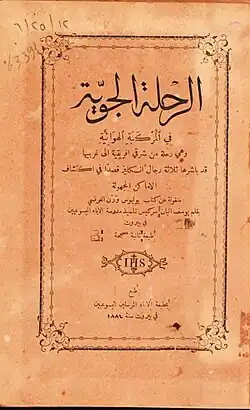 ١٢/٢٥/٦
الرحلة الجوية
في المركبة الهوائية
وهي رحلة من شرقي افريقية الى غربيها
قد باشرها ثلاثة رجال انكليز قصدًا في اكتشاف
الاماكن المجهولة
منقولة عن كتاب يوليوس ورن الفرنسي
بقلم يوسف اليان سركيس تلميذ مدرسة الآباء اليسوعيين
في بيروت
طبعة ثانية مصححة
IHS
طبع
بمطبعة الآباء المرسلين اليسوعيين
في بيروت سنة ١٨٨٤